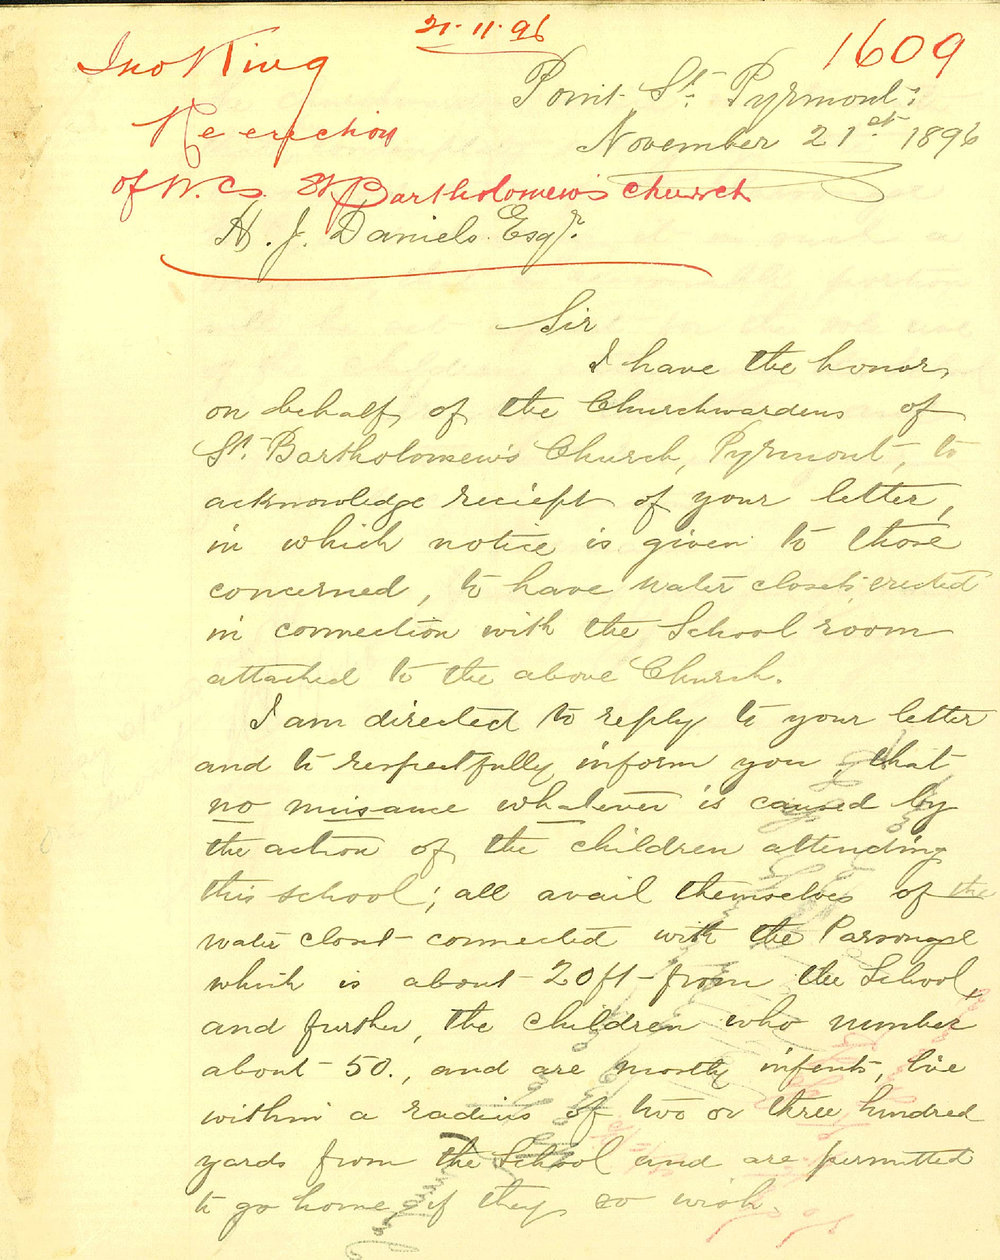 21.11.96
1609
Jno King
Re erection
of W.Cs. St Bartholomew's church
Point St. Pyrmont.
November 21st 1896
H. J. Daniels. Esqr.
Sir
I have the honor,
on behalf, of the Churchwardens of
St. Bartholomew's Church, Pyrmont, to
acknowledge reciept of your letter,
in which notice is given to those
concerned, to have water closets, erected
in connection with the School room
attached to the above Church.
I am directed to reply to your letter
and to respectfully inform you, that
no nuisance whatever is caused by
the action of the children attending
this school; all avail themselves of the
water closet connected with the Parsonage
which is about 20ft from the School,
and further, the children who number
about 50., and are mostly infants, live
within a radius of two or three hundred
yards from the School and are permitted
to go home if they so wish.